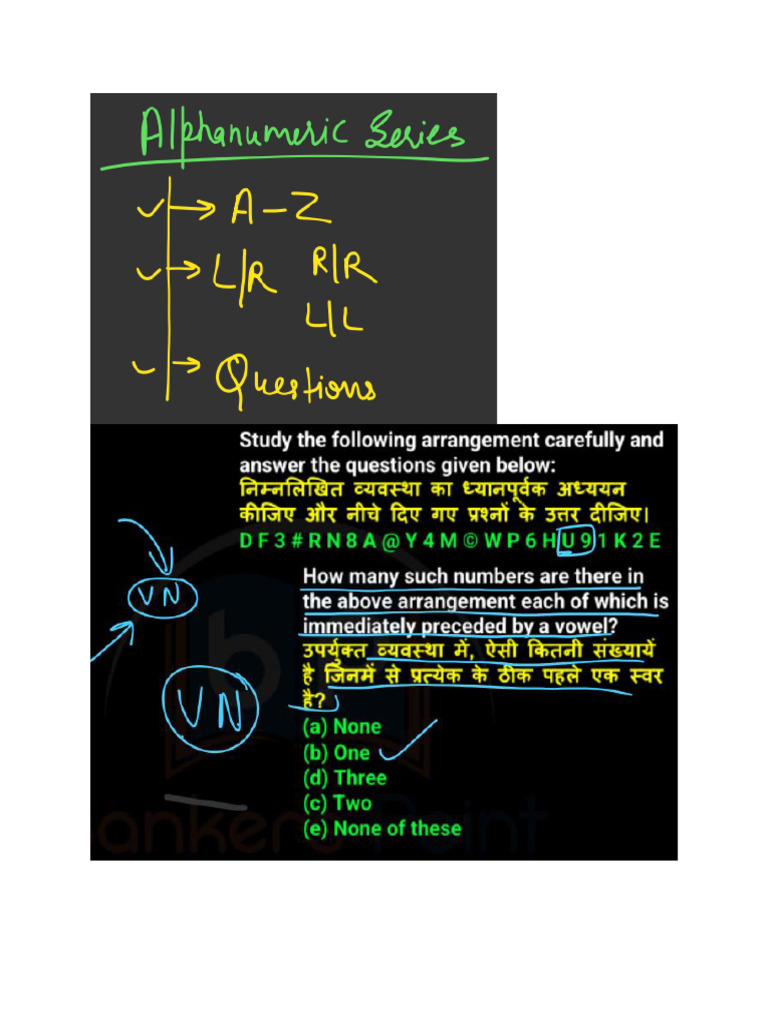 Alphanumeric Series
A-Z
L/R R/R
L/L
Questions
Study the following arrangement carefully and
answer the questions given below:
निम्नलिखित व्यवस्था का ध्यानपूर्वक अध्ययन
कीजिए और नीचे दिए गए प्रश्नों के उत्तर दीजिए।
D F 3 # R N 8 A @ Y 4 M © W P 6 H U 9 1 K 2 E
How many such numbers are there in
VN
the above arrangement each of which is
immediately preceded by a vowel?
उपर्युक्त व्यवस्था में, ऐसी कितनी संख्यायें
है जिनमें से प्रत्येक के ठीक पहले एक स्वर
VN
है?
(a) None
(b) One
(d) Three
(c) Two
(e) None of these